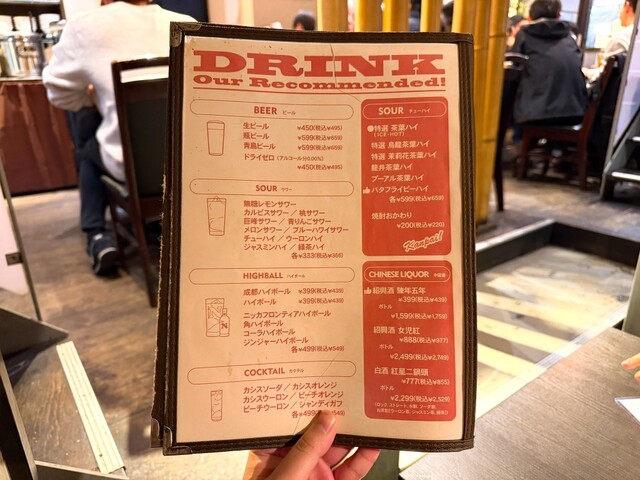 DRINK
Our Recommended!
BEER ビール
生ビール ¥450(税込¥495)
瓶ビール ¥599(税込¥659)
青島ビール ¥599(税込¥659)
ドライゼロ(アルコール分0.00%)
¥450(税込¥495)
SOUR サワー
無糖レモンサワー
カルピスサワー / 桃サワー
巨峰サワー / 青りんごサワー
メロンサワー / ブルーハワイサワー
チューハイ / ウーロンハイ
ジャスミンハイ / 緑茶ハイ
各¥333(税込¥366)
HIGHBALL ハイボール
成都ハイボール ¥399(税込¥438)
ハイボール ¥399(税込¥438)
ニッカフロンティアハイボール
角ハイボール
コーラハイボール
ジンジャーハイボール
各¥499(税込¥549)
COCKTAIL カクテル
カシスソーダ / カシスオレンジ
カシスウーロン / ピーチオレンジ
ピーチウーロン / シャンディガフ
各¥499(税込¥549)
SOUR チューハイ
特選 茶葉ハイ
(ICE・HOT)
特選 烏龍茶葉ハイ
特選 茉莉花茶葉ハイ
龍井茶葉ハイ
プーアル茶葉ハイ
バタフライピーハイ
各¥599(税込¥659)
焼酎おかわり
¥200(税込¥220)
Kanpai!
CHINESE LIQUOR 中国酒
紹興酒 陳年五年
¥399(税込¥438)
ボトル
¥1,599(税込¥1,759)
紹興酒 女児紅
¥888(税込¥977)
ボトル
¥2,499(税込¥2,749)
白酒 紅星二鍋頭
¥777(税込¥855)
ボトル
¥2,299(税込¥2,529)